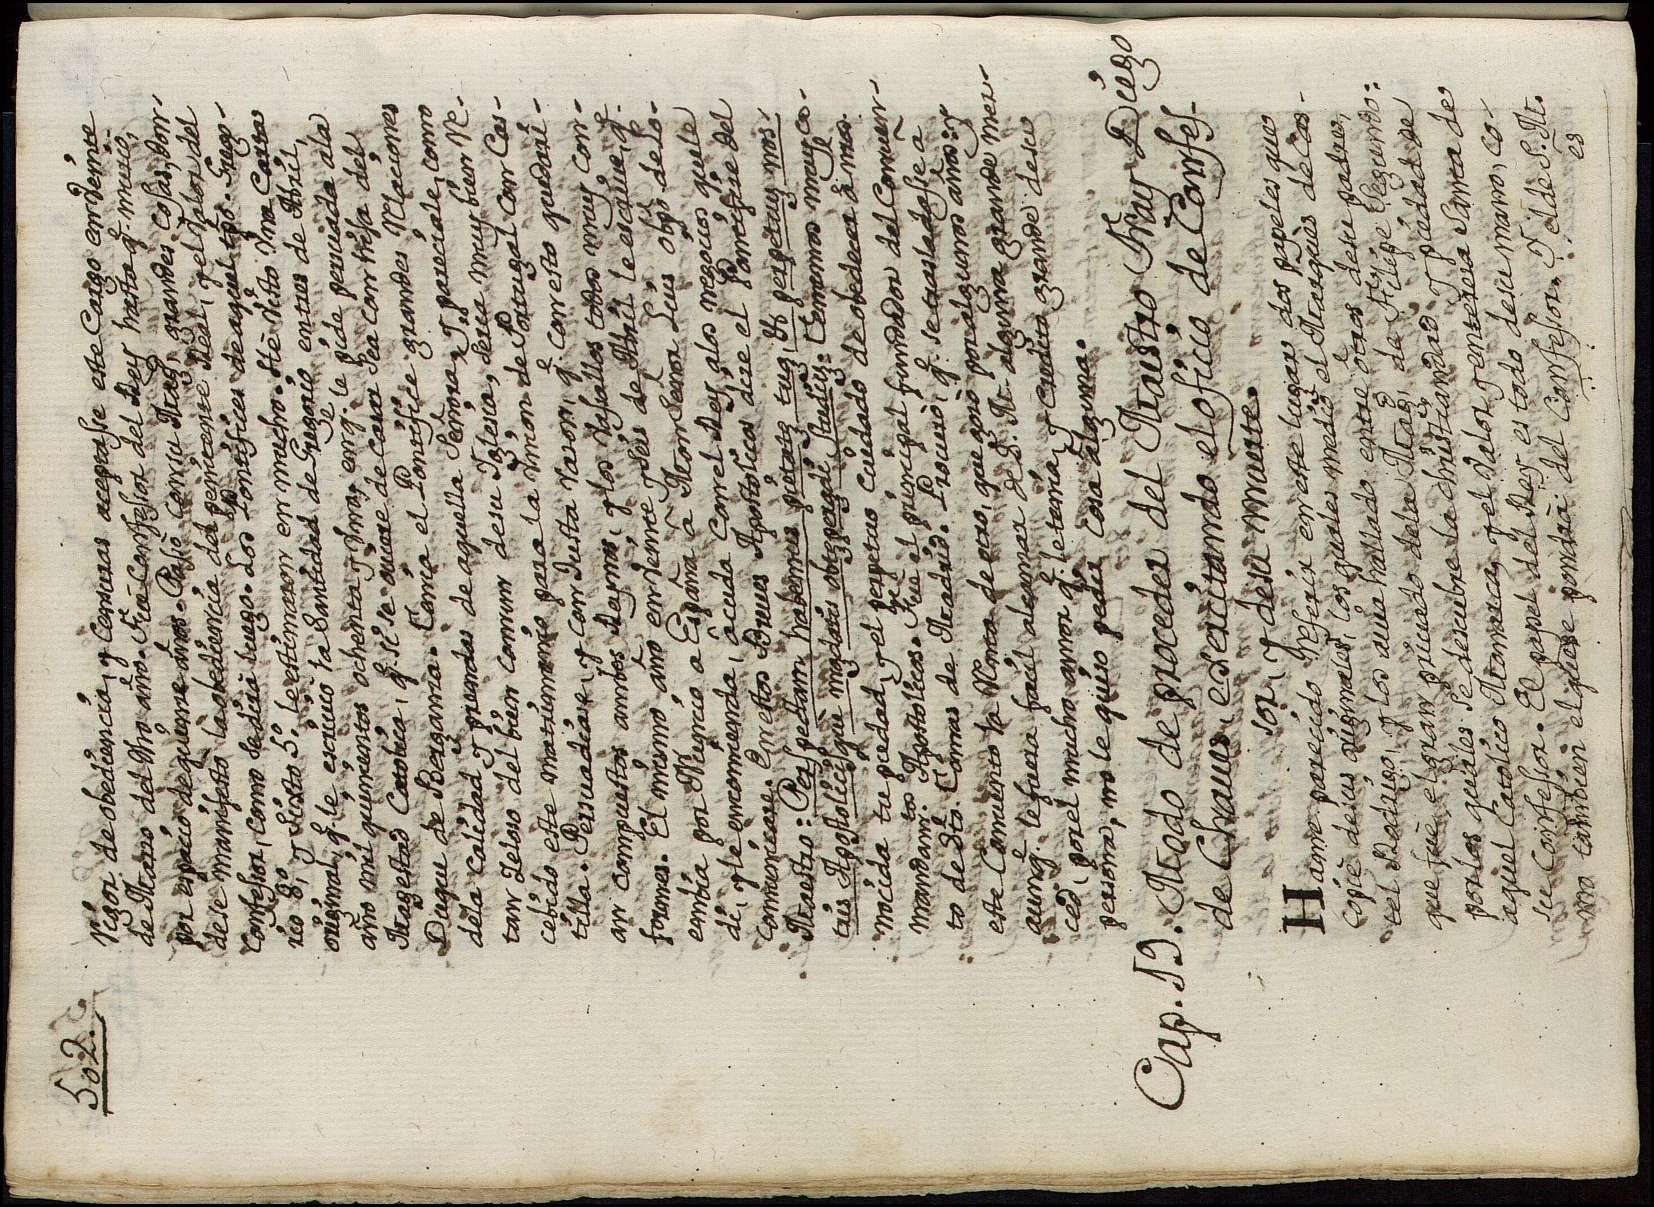 502.
rigor de obediencia, y censuras aceptase este Cargo en veinte
de Março del dho año. Fue Confesor del Rey hasta q̃ murio,
por espacio de quinze años. Passo con su Magᵈ grandes cosas, don-
de se manifesto la obediencia del penitente Real, y el valor del
Confesor, como se dira luego. Los Pontifices de aquel tpõ. Grego-
rio 8º y Sixto 5º le estimaron en mucho. Hè visto Una Carta
original q̃ le escriuio la Santidad de Gregorio en tres de Abril,
año mil quinientos ochenta y Uno, en q̃ le pide persuada ala
Magestad Catolica, q̃ si se ouiere de casar sea con hija del
Duque de Bergança. Tenia el Pontifice grandes Relaciones
dela Calidad y prendas de aquella Señora, y pareciale, como
tan zeloso del bien comun de su Iglesia, seria muy bien Re-
cebido este matrimonio para la Vnion de Portugal con Cas-
tilla. Persuadiase, y con Justa razon, q̃ con esto quedari-
an compuestos ambos Reynos, y los Vasallos todos muy con-
formes. El mismo año en veinte y seis de Abril le escriue, q̃
embia por Nuncio a España à Monseñor Luis Obpõ de Lo-
di, y le encomienda, acuda con el Rey, alos negocios que le
comunicare. En estos Breues Apostolicos dice el Pontifice del
Maestro: Perspectam habemus pietatẽ tuã, & perpetuuʒ nos-
tris Apostolicisque mãdatis obtẽperãdi studiũ: Tenemos muy co-
nocida tu piedad, y el perpetuo cuidado de obedecer à nr̃os
mandamtᵒˢ Apostolicos. Fue el principal fundador del Conuen-
to de Stº. Tomas de Madrid. Procurò, q̃ se trasladase a
este Conuento la Renta de otro, que gozò por algunos años: y
aunq̃ le fuera facil alcançar de S. M. alguna grande mer-
ced, por el mucho amor q̃ le tenia, y credito grande de su
persona, no le quiso pedir cosa alguna.
Cap. 13. Modo de proceder del Maestro Fray Diego
de Chaues, exercitando el oficio de Confes-
sor, y de su muerte.
Hame parecido referir en este lugar dos papeles que
copiè de sus originales, los quales me diò el Marques de Cas-
tel Rodrigo, y los auia hallado entre otros de su padre,
que fue el gran priuado dela Magᵈ de Felipe Segundo:
por los quales se descubre la christiandad y piedad de
aquel Catolico Monarca, y el valor y entereza santa de
su Confessor. El papel del Rey es todo de su mano, co-
mo tambien el que se pondra del Confessor. Y el de S. M.
es